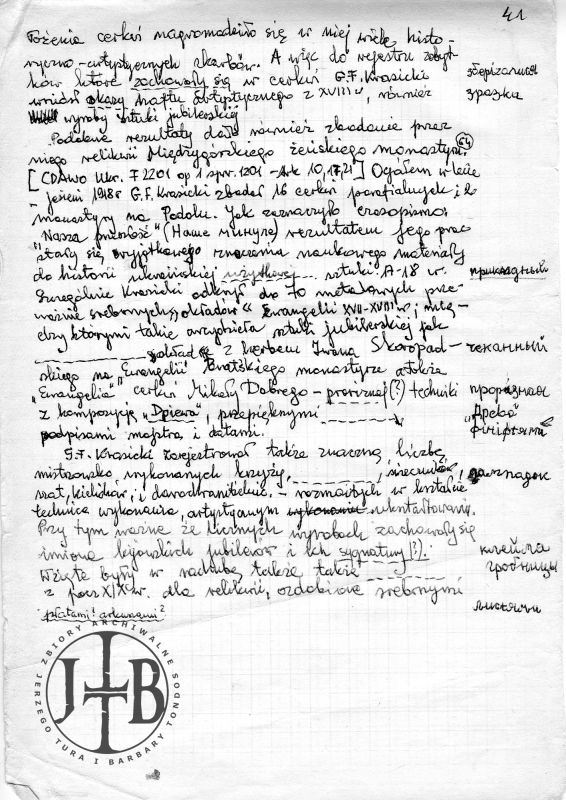 41
łożenia cerkwi nagromadziło się w niej wiele histo-
ryczno-artystycznych skarbów. A więc do rejestru zabyt-
ków które zachowały się w cerkwi G.F. Krasicki
зберігалися
wniósł okazy haftu artystycznego z XVIII w, również
зразки
wyroby sztuki jubilerskiej
Podobne rezultaty dało również zbadanie przez
niego relikwii Międzygórskiego żeńskiego monastyru. 64
[CDAWO Ukr. F 2201 op 1 spr. 1201 - Ark 10, 17, 21] Ogółem w lecie
- jesieni 1918r G.F. Krasicki zbadał 16 cerkwi parafialnych i 2
monastyry na Podolu. Jak zaznaczyło czasopismo
"Nasza przeszłość" (Наше минуле) rezultatem jego prac
"stały się wyjątkowego znaczenia naukowego materiały
do historii ukraińskiej użytkowej sztuki 17-18 w.
прикладный
Szczególnie Krasicki odkrył do 70 metalowych prze-
ważnie srebrnych "okładów" Ewangelii XVII-XVIII w, mię-
dzy którymi takie arcydzieła sztuki jubilerskiej jak
okład z herbem Iwana Skoropad-
чеканный
skiego na "Ewangelii" Bratskiego monastyru a także
"Ewangelia" cerkwi Mikoły Dobrego - (?) techniki
прорізная
z kompozycją "Drzewa", przepięknymi
"Древо"
фініфтями
podpisami majstra i datami.
G.F. Krasicki zarejestrował także znaczną liczbę
mistrzowsko wykonanych krzyży, , świeczników,
лампадок
szat, kielichów, i darochranitelnic - rozmaitych w kształcie
technice wykonania, artystycznym
Przy tym ważne że licznych wyrobach zachowały się
imiona kijowskich jubilerów i ich sygnatury (?).
клейма
Wzięte były w rachubę także takie
гробницы
z pocz XIX w. dla relikwii, ozdobione srebrnymi
"płatami" arkuszami?
листями
ZBIORY ARCHIWALNE SODO
JERZEGO TURA I BARBARY TONDOS
J B